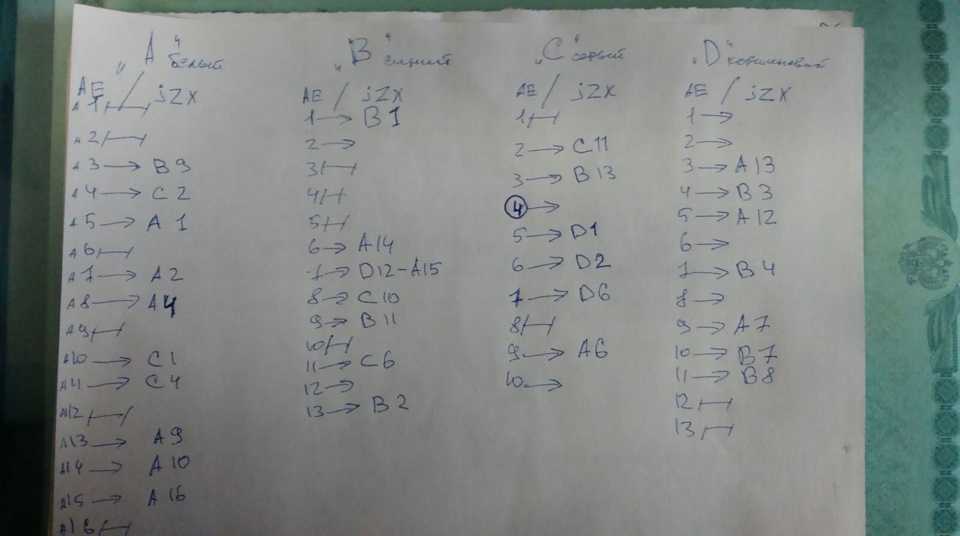 "A" белый
AE / jZX
A1 ⊢⊣
A2 ⊢⊣
A3 → B9
A4 → C2
A5 → A1
A6 ⊢⊣
A7 → A2
A8 → A4
A9 ⊢⊣
A10 → C1
A11 → C4
A12 ⊢⊣
A13 → A9
A14 → A10
A15 → A16
A16 ⊢⊣
"B" синий
AE / jZX
1 → B1
2 →
3 ⊢⊣
4 ⊢⊣
5 ⊢⊣
6 → A14
7 → D12-A15
8 → C10
9 → B11
10 ⊢⊣
11 → C6
12 →
13 → B2
"C" серый
AE / jZX
1 ⊢⊣
2 → C11
3 → B13
4 →
5 → D1
6 → D2
7 → D6
8 ⊢⊣
9 → A6
10 →
"D" коричневый
AE / jZX
1 →
2 →
3 → A13
4 → B3
5 → A12
6 →
7 → B4
8 →
9 → A7
10 → B7
11 → B8
12 ⊢⊣
13 ⊢⊣